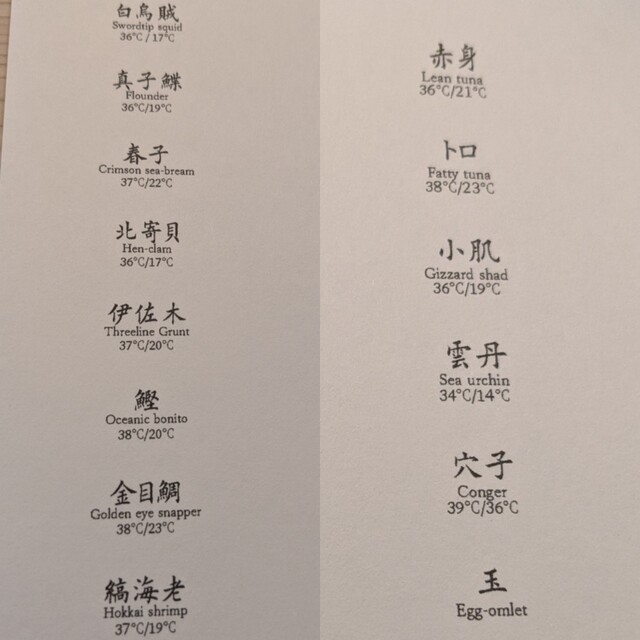 白烏賊
Swordtip squid
36℃ / 17℃
真子鰈
Flounder
36℃/19℃
春子
Crimson sea-bream
37℃/22℃
北寄貝
Hen-clam
36℃/17℃
伊佐木
Threeline Grunt
37℃/20℃
鰹
Oceanic bonito
38℃/20℃
金目鯛
Golden eye snapper
38℃/23℃
縞海老
Hokkai shrimp
37℃/19℃
赤身
Lean tuna
36℃/21℃
トロ
Fatty tuna
38℃/23℃
小肌
Gizzard shad
36℃/19℃
雲丹
Sea urchin
34℃/14℃
穴子
Conger
39℃/36℃
玉
Egg-omlet